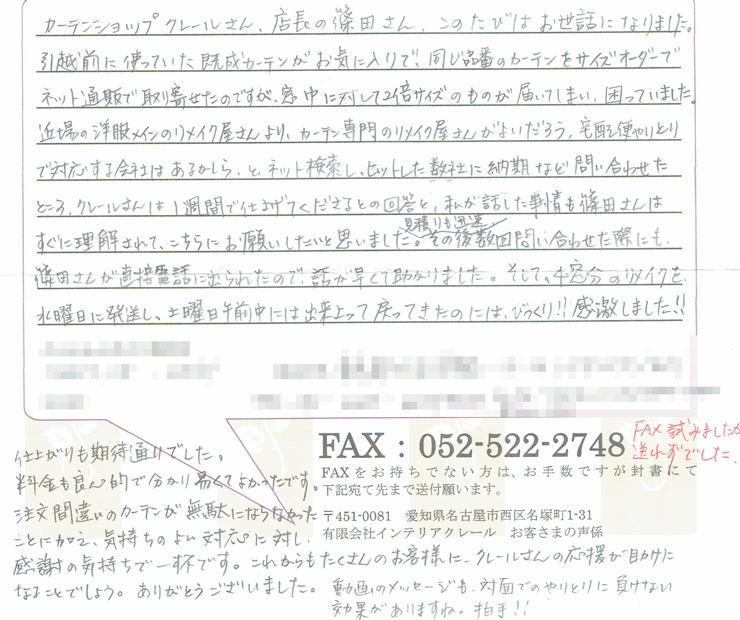 カーテンショップ クレールさん、店長の篠田さん、このたびは お世話になりました。
引越前に使っていた既成カーテンがお気に入りで、同じ品番のカーテンをサイズオーダーで
ネット通販で取り寄せたのですが、窓巾に対して2倍サイズのものが届いてしまい、困っていました。
近場の洋服メインのリメイク屋さんより、カーテン専門のリメイク屋さんがよいだろう、宅配便やりとり
で対応する会社はあるかしら、と、ネット検索し、ヒットした数社に納期など問い合わせた
ところ、クレールさんは1週間で仕上げてくださるとの回答と、私が話した事情も篠田さんは
見積りも迅速
すぐに理解されて、こちらにお願いしたいと思いました。その後数回問い合わせた際にも、
篠田さんが直接電話に出られたので、話が早くて助かりました。そして、4窓分のリメイクを、
水曜日に発送し、土曜日午前中には出来上って戻ってきたのには、びっくり!!感激しました!!
仕上がりも期待通りでした。
料金も良心的で分かり易くてよかったです。
注文間違いのカーテンが無駄にならなかった
ことに加え、気持ちのよい対応に対し、
感謝の気持ちで一杯です。これからもたくさんのお客様に、クレールさんの応援が助けに
なることでしょう。ありがとうございました。
動画のメッセージも、対面でのやりとりに負けない
効果がありますね。拍手!!
FAX：052-522-2748
FAX試みましたが
送れずでした。
FAXをお持ちでない方は、お手数ですが封書にて
下記宛て先まで送付願います。
〒451-0081 愛知県名古屋市西区名塚町1-31
有限会社インテリアクレール お客さまの声係